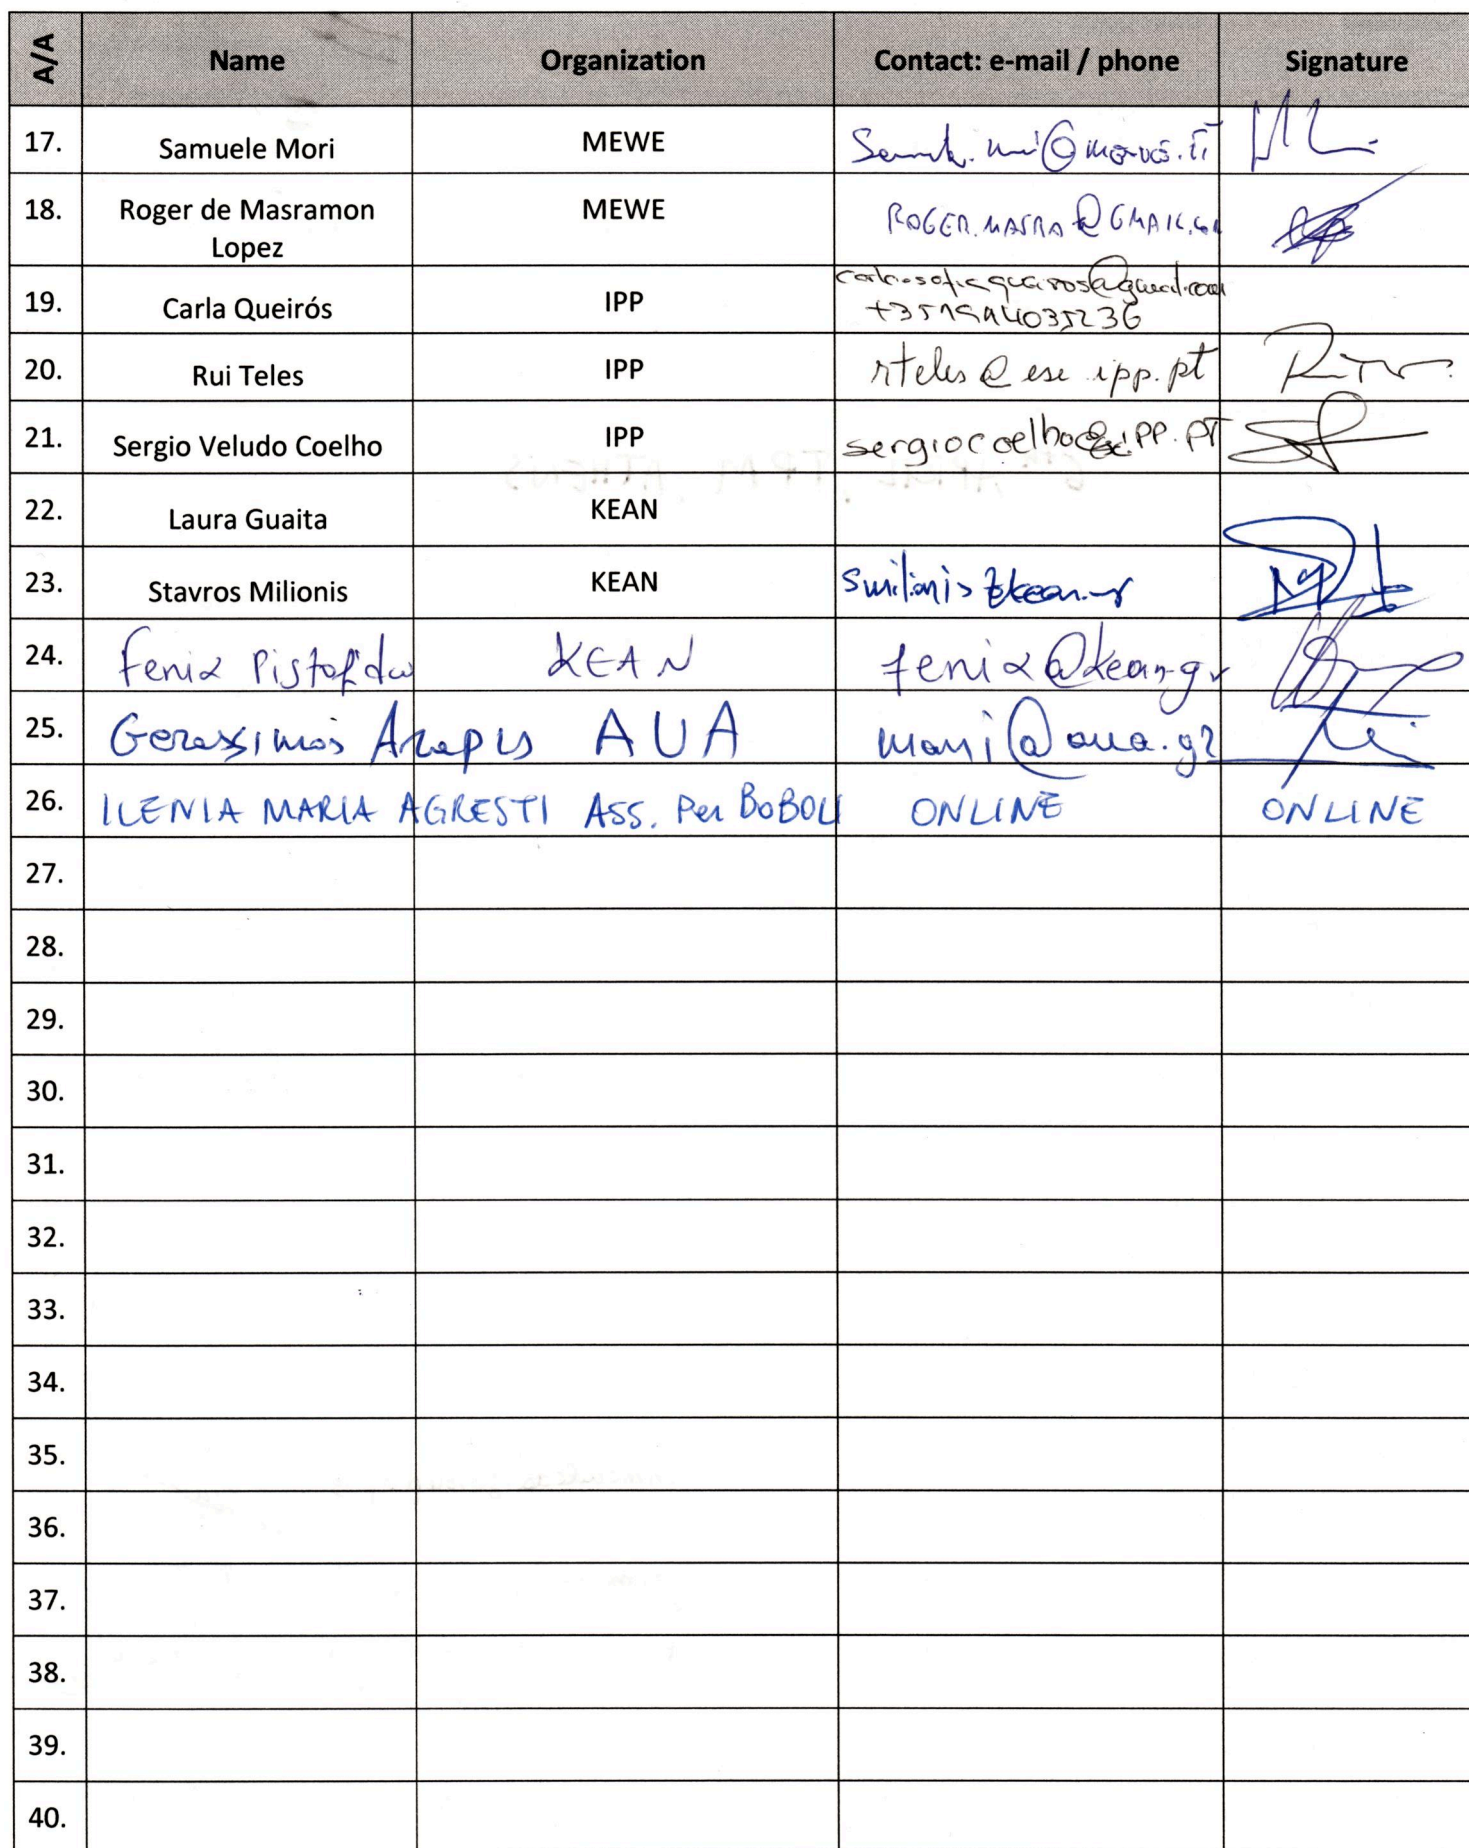 A/A Name Organization Contact: e-mail / phone Signature
17. Samuele Mori MEWE
18. Roger de Masramon Lopez MEWE ROGER.MASRA@GMAIL.COM
19. Carla Queirós IPP
20. Rui Teles IPP rteles@ese.ipp.pt
21. Sergio Veludo Coelho IPP sergiocoelho@ese.IPP.PT
22. Laura Guaita KEAN
23. Stavros Milionis KEAN smilionis@kean.gr
24. Fenia KEAN fenia@kean.gr
25. Gerassimos Arapis AUA mani@aua.gr
26. ILENIA MARIA AGRESTI ASS. Per BOBOLI ONLINE ONLINE
27.
28.
29.
30.
31.
32.
33.
34.
35.
36.
37.
38.
39.
40.